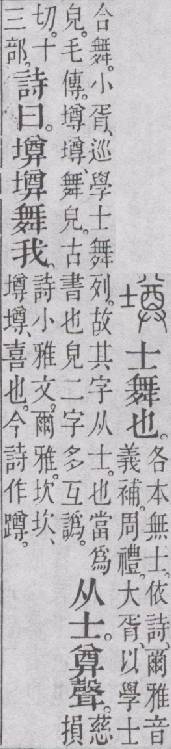 壿 士舞也。各本無士。依詩、爾雅音
義補。周禮。大胥、以學士
合舞。小胥、巡學士舞列。故其字从士。也當爲
皃。毛傳。壿壿、舞皃。古書也皃二字多互譌。
从士。尊聲。慈
損
切。十
三部。
詩曰。壿壿舞我。
詩小雅文。爾雅。坎坎、
壿壿、喜也。今詩作蹲。